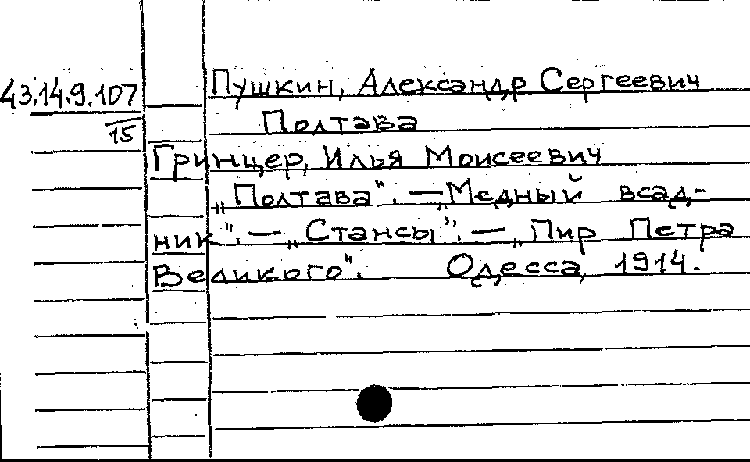 43.14.9.107 Пушкин, Александр Сергеевич
15 Полтава
Гринцер, Илья Моисеевич
„Полтава". — „Медный всад-
ник". — „Стансы". — „Пир Петра
Великого". Одесса, 1914.